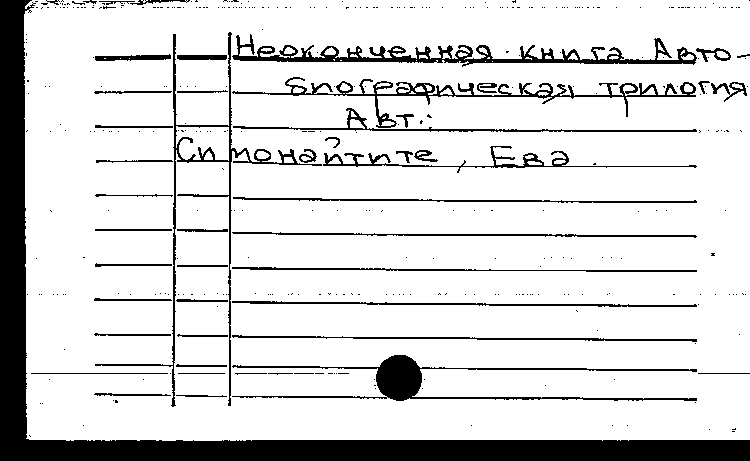 Неоконченная книга Авто-
биографическая трилогия
Авт.:
Симонайтите, Ева.